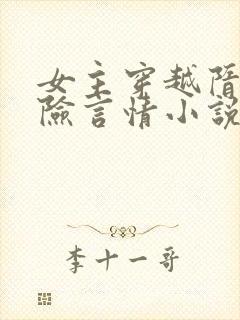 女主穿越隋
險言情小說
李十一哥